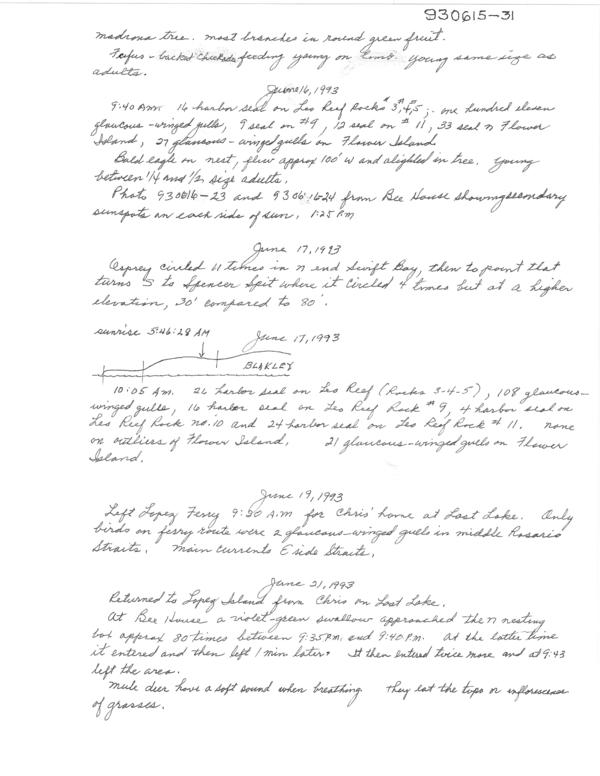 930615-31
madrona tree. most branches in round green fruit.
Feifus-backed Chickada feeding young on limb. young same size as
adults.
June 16, 1993
9:40 A.M. 16 harbor seal on Leo Reef Rocks #3, #4, #5; one hundred eleven
glaucous-winged gulls, 9 seal on #9, 12 seal on #11, 33 seal N Flower
Island, 27 glaucous-winged gulls on Flower Island.
Bald eagle on nest, flew approx 100' W and alighted in tree. young
between 1/4 and 1/2 size adults.
Photo 930616-23 and 930616-24 from Bee House showing secondary
sunspots on each side of sun. 1:25 PM
June 17, 1993
Osprey circled 11 times in N end Swift Bay, then to point that
turns S to Spencer Spit where it circled 4 times but at a higher
elevation, 30' compared to 80'.
sunrise 5:46:28 AM June 17, 1993
BLAKLEY
10:05 A.M. 26 harbor seal on Leo Reef (Rocks 3-4-5), 108 glaucous-
winged gulls, 16 harbor seal on Leo Reef Rock #9, 4 harbor seal on
Leo Reef Rock no. 10 and 24 harbor seal on Leo Reef Rock #11. none
on outliers of Flower Island. 21 glaucous-winged gulls on Flower
Island.
June 19, 1993
Left Lopez Ferry 9:30 A.M for Chris' home at Lost Lake. Only
birds on ferry route were 2 glaucous-winged gulls in middle Rosario
Straits. main currents E side Straits.
June 21, 1993
Returned to Lopez Island from Chris on Lost Lake.
At Bee House a violet-green swallow approached the N nesting
box approx 80 times between 9:35 P.M. and 9:40 P.M. At the latter time
it entered and then left 1 min later. It then entered twice more and at 9:43
left the area.
Mule deer have a soft sound when breathing They eat the tips or inflorescence
of grasses.